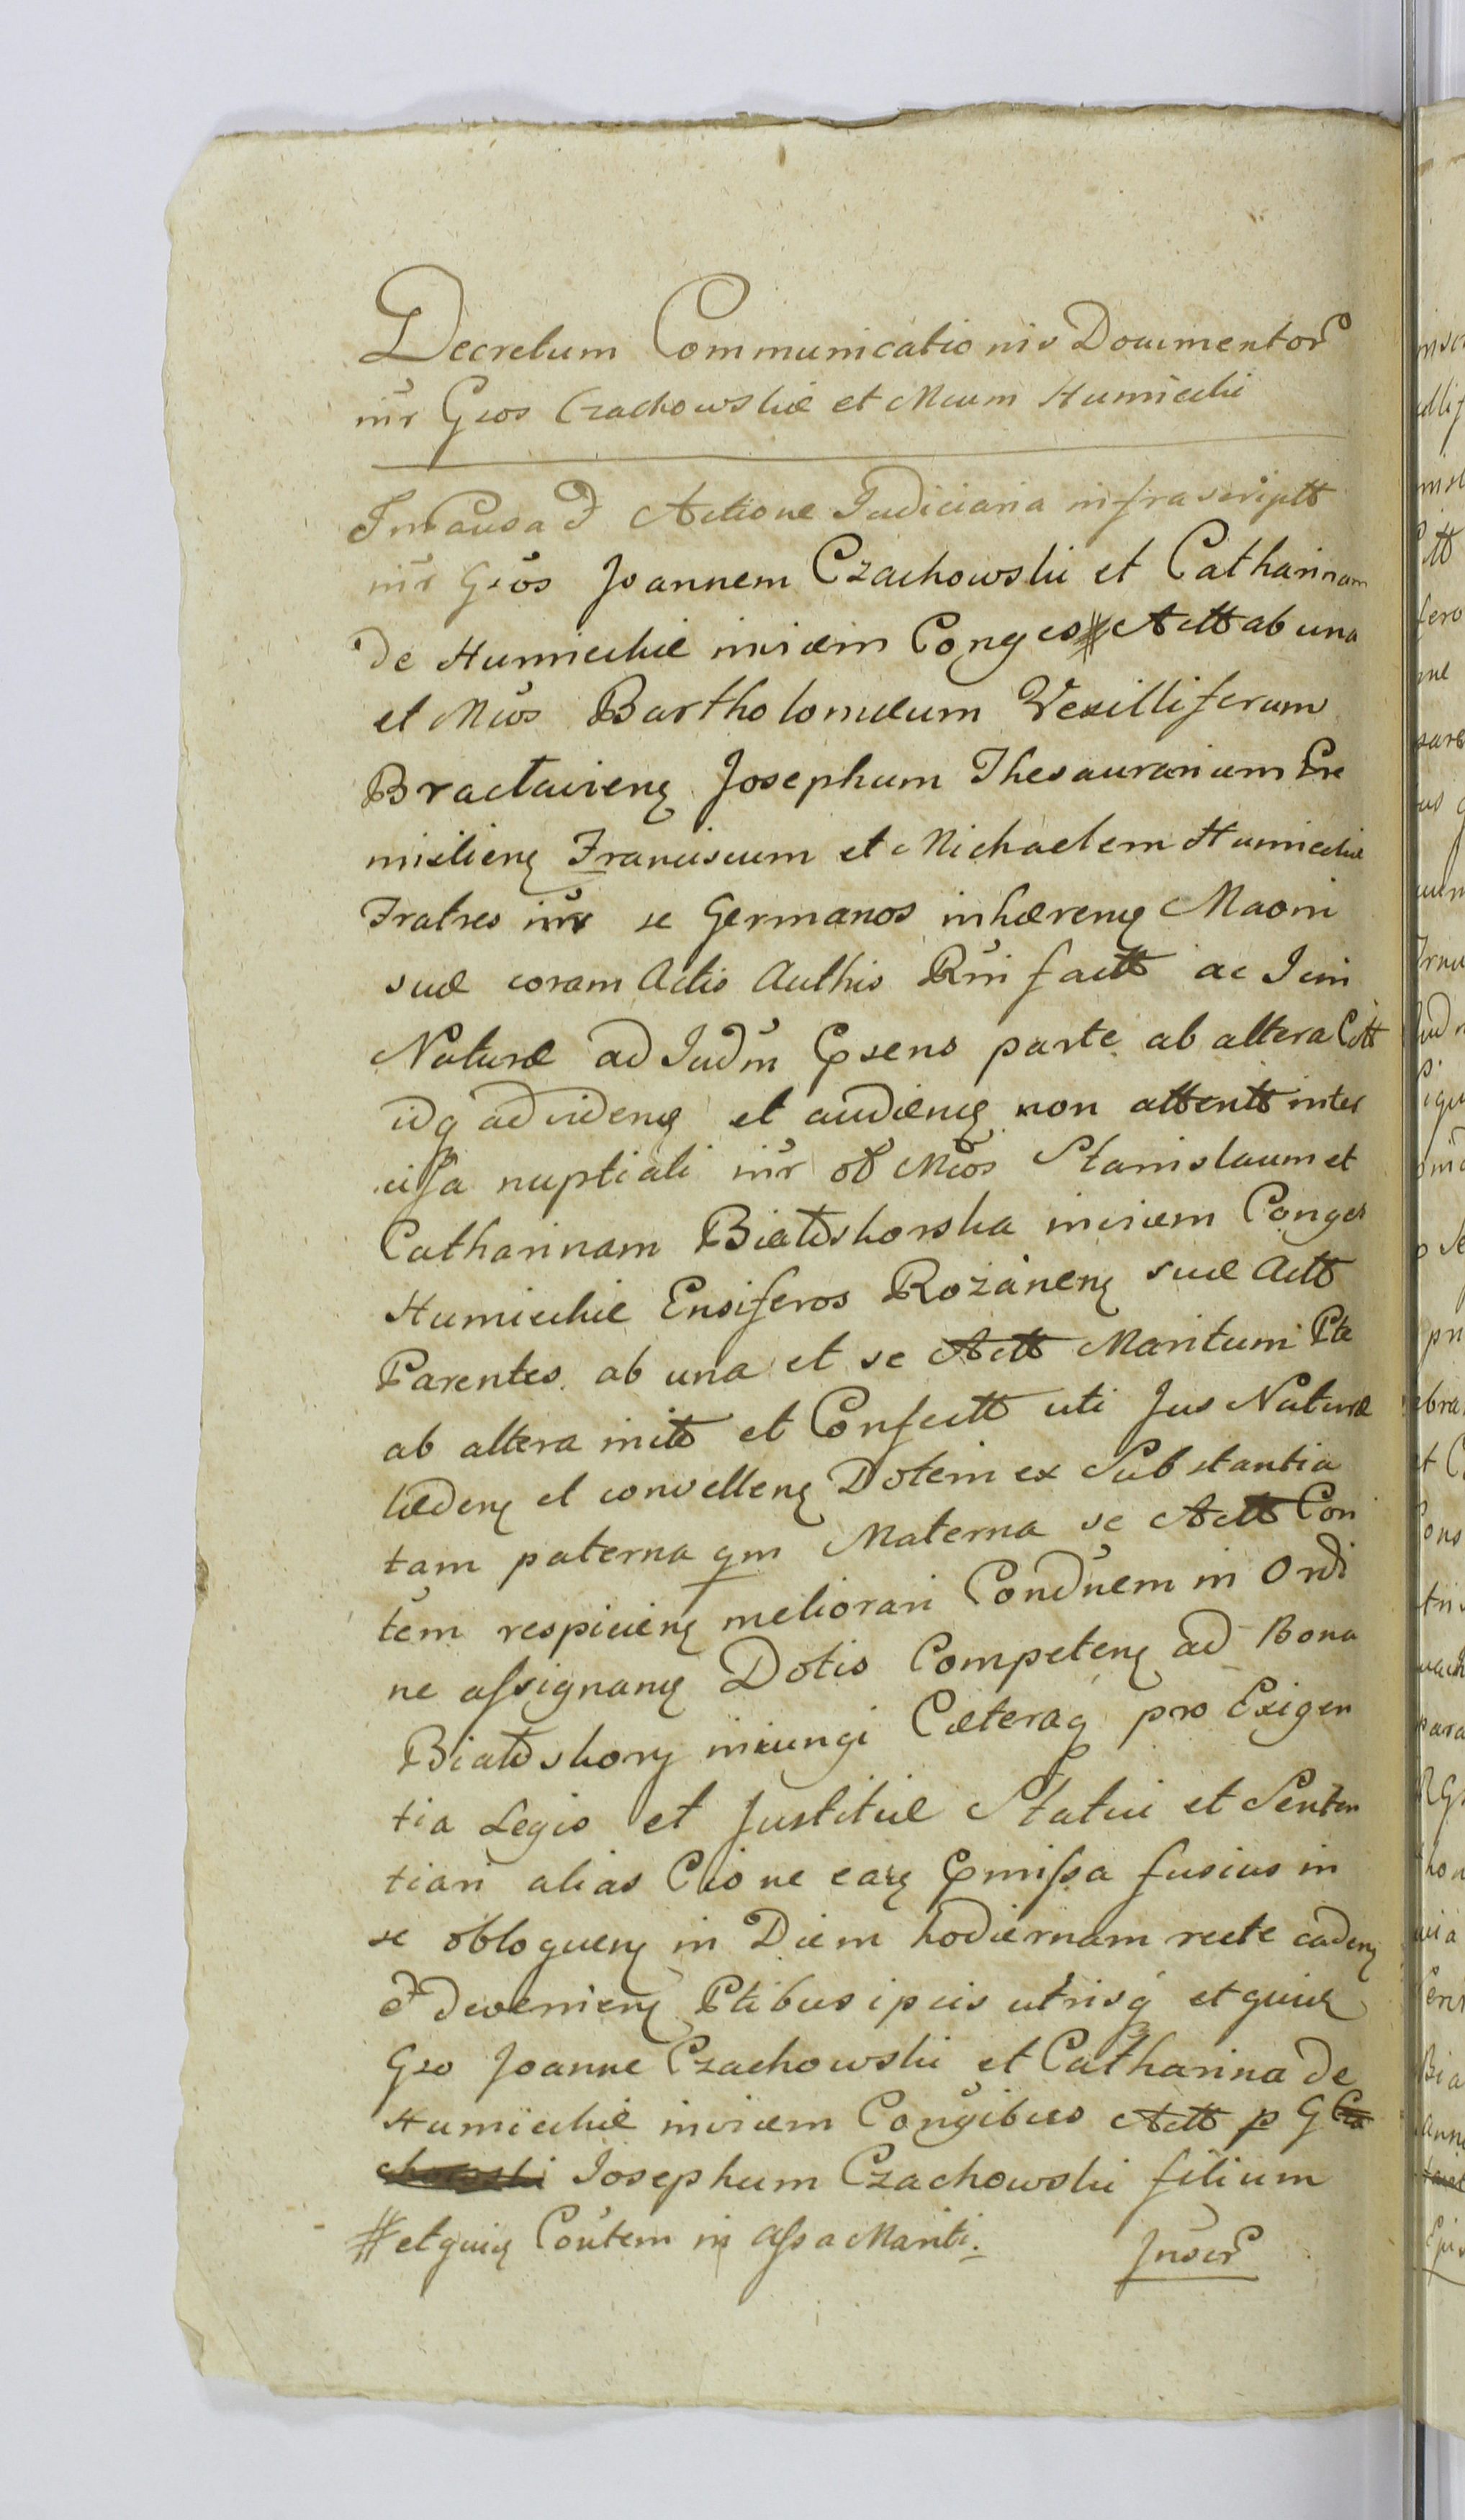 Decretum Communicationis Documentor
intr Gsos Czachowskie et Mcum Humiecki
In Causa & Actione Judiciaria infrascriptt
intr Gsos Joannem Czachowski et Catharinam
de Humieckie invicem Conges # Actt ab una
et Mcos Bartholomæum Vexilliferum
Braclaviens Josephum Thesaurarium Pre
misliens Franciscum et Michaelem Humieckie
Fratres intr se Germanos inhærens Maoni
suæ coram Actis Authis Rni factt ac Juri
Naturæ ad Judm Psens parte ab altera Citt
idq ad videns et audiens non attentt inter
cisa nuptiali intr ol Mcos Stanislaum et
Catharinam Białoskorska invicem Conges
Humieckie Ensiferos Rozanens suæ Actt
Parentes ab una et se Actt Maritum Pte
ab altera initt et Confectt uti Jus Naturæ
lædens et convellens Dotem ex Substantia
tam paterna qm Materna se Actt Con
tem respiciens meliorari Condnem in Ordi
ne assignans Dotis Competens ad Bona
Białoskory iniungi Cæteraq pro Exigen
tia Legis et Justitiæ Statui et Senten
tiari alias Cione earg Pmissa fusius in
se obloquens in Diem hodiernam recte cadens
& deveniens Ptibus ipsis utrisq et quidem
Gso Joanne Czachowski et Catharina de
Humieckie invicem Congibus Actt p G Cza
chowski Josephum Czachowski filium
# et quidem Contem in Assa Mariti.
Juscr